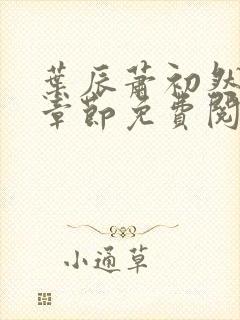 葉辰蕭初然
章節免費閱
小通草